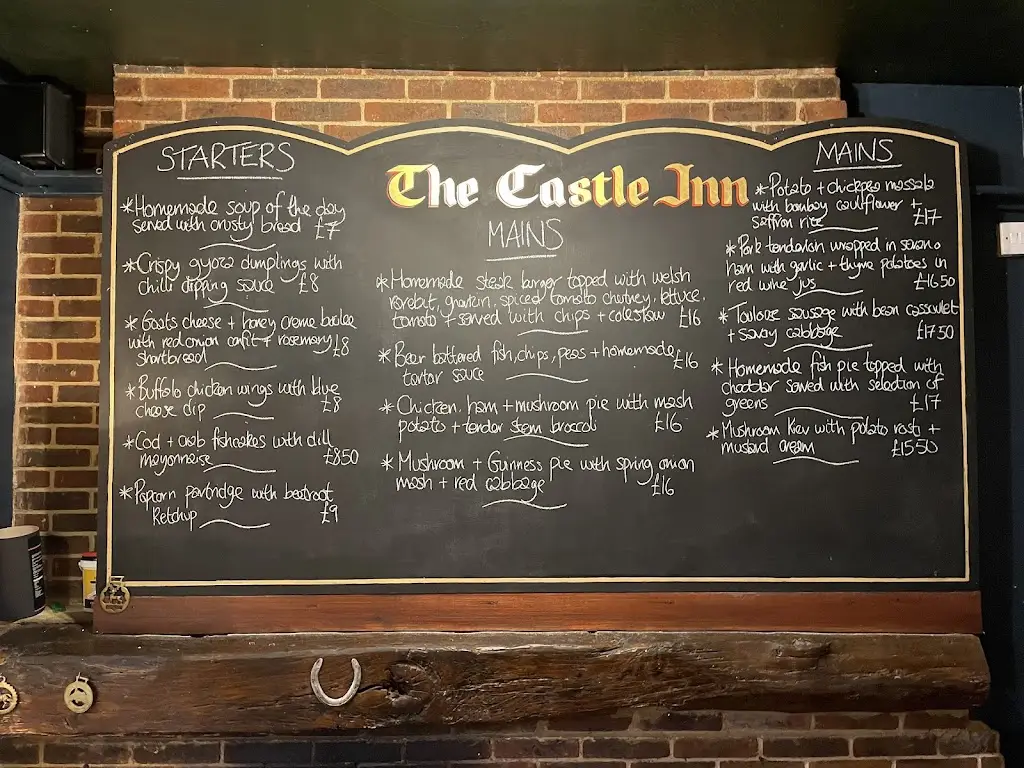 STARTERS
*Homemade soup of the day
served with crusty bread £7
*Crispy gyoza dumplings with
chilli dipping sauce £8
*Goats cheese + honey creme brulee
with red onion confit + rosemary £8
shortbread
*Buffalo chicken wings with blue
cheese dip £8
*Cod + crab fishcakes with dill
mayonnaise £8.50
*Popcorn partridge with beetroot
Ketchup £9
The Castle Inn
MAINS
*Homemade steak burger topped with welsh
rarebit, gherkin, spiced tomato chutney, lettuce,
tomato + served with chips + coleslaw £16
*Beer battered fish, chips, peas + homemade £16
tartar sauce
*Chicken, ham + mushroom pie with mash
potato + tender stem broccoli £16
*Mushroom + Guinness pie with spring onion
mash + red cabbage £16
MAINS
*Potato + chickpea massala
with bombay cauliflower +
saffron rice £17
*Pork tenderloin wrapped in serrano
ham with garlic + thyme potatoes in
red wine jus £16.50
*Toulouse sausage with bean cassoulet
+ savoy cabbage £17.50
*Homemade fish pie topped with
cheddar served with selection of
greens £17
*Mushroom Kiev with potato rosti +
mustard cream £15.50